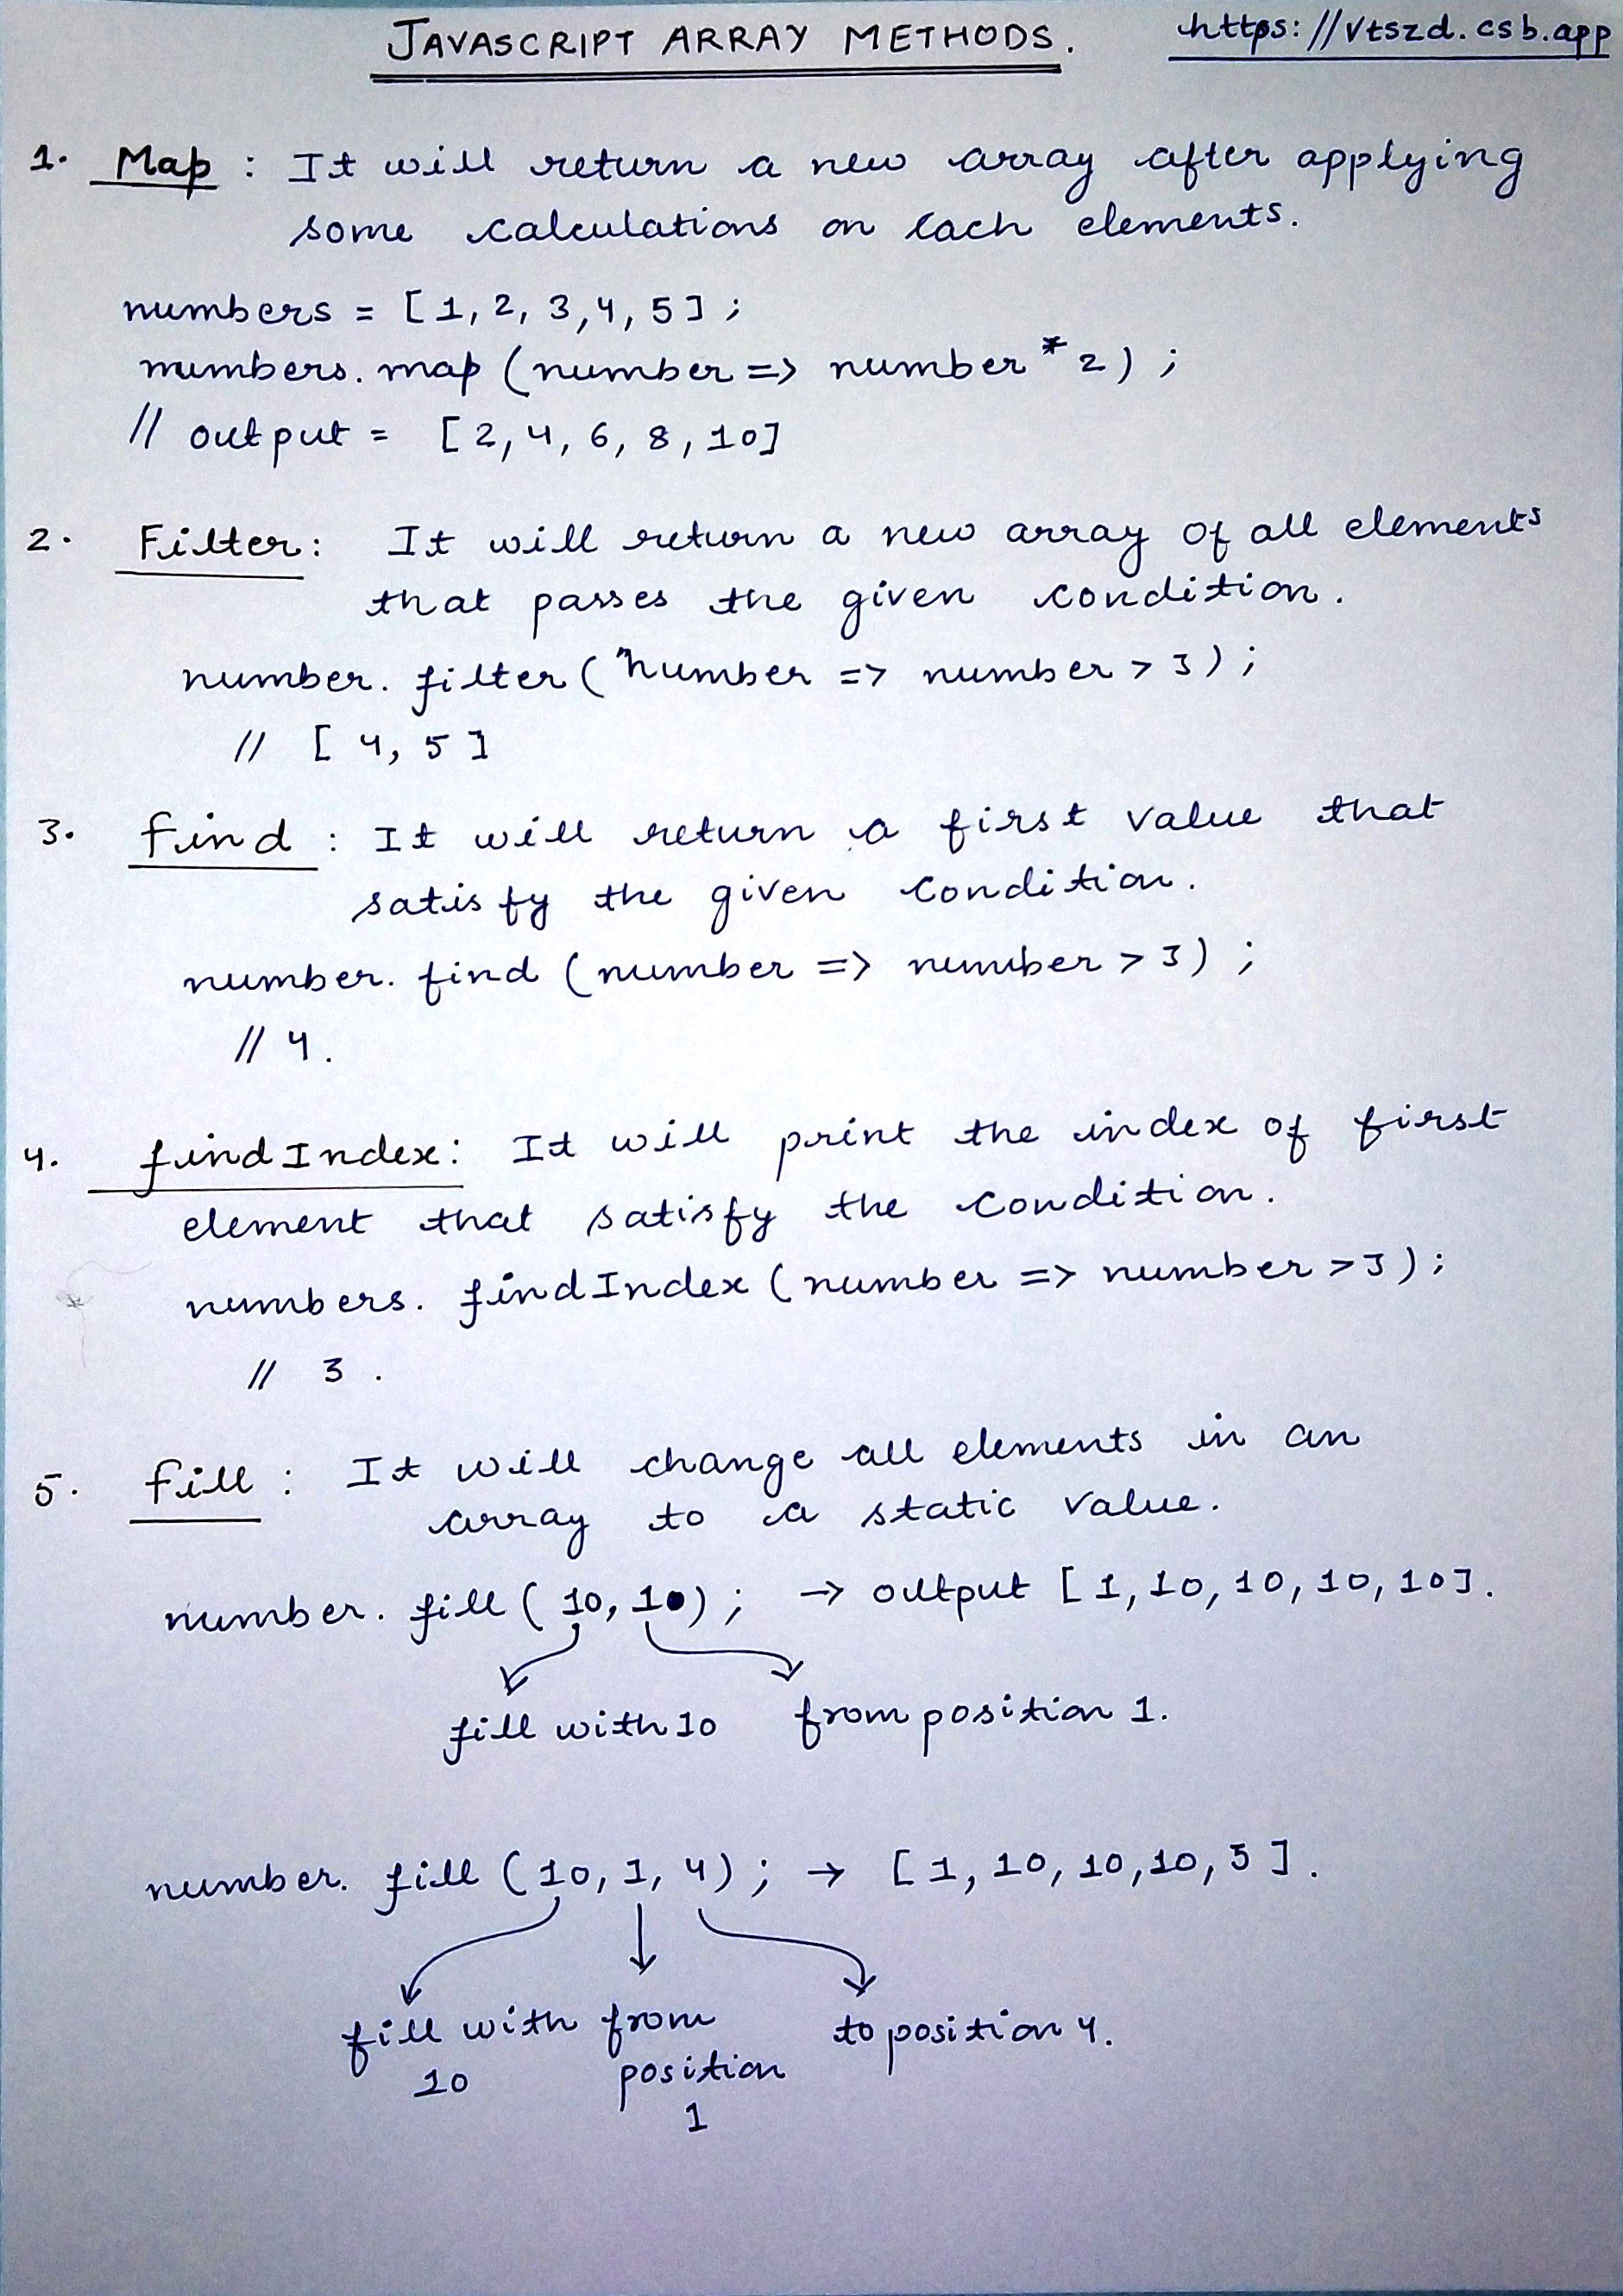 JAVASCRIPT ARRAY METHODS.
https://vtszd.csb.app
1. Map : It will return a new array after applying
some calculations on each elements.
numbers = [1, 2, 3, 4, 5] ;
numbers. map (number => number * 2) ;
// output = [2, 4, 6, 8, 10]
2. Filter : It will return a new array of all elements
that passes the given condition.
number. filter ( number => number > 3 ) ;
// [ 4, 5 ]
3. find : It will return a first value that
satisfy the given condition.
number. find (number => number > 3) ;
// 4.
4. findIndex : It will print the index of first
element that satisfy the condition.
numbers. findIndex ( number => number > 3 ) ;
// 3 .
5. fill : It will change all elements in an
array to a static value.
number. fill ( 10, 1 ) ; → output [ 1, 10, 10, 10, 10 ].
fill with 10 from position 1.
number. fill ( 10, 1, 4 ) ; → [ 1, 10, 10, 10, 5 ] .
fill with from to position 4.
10 position
1